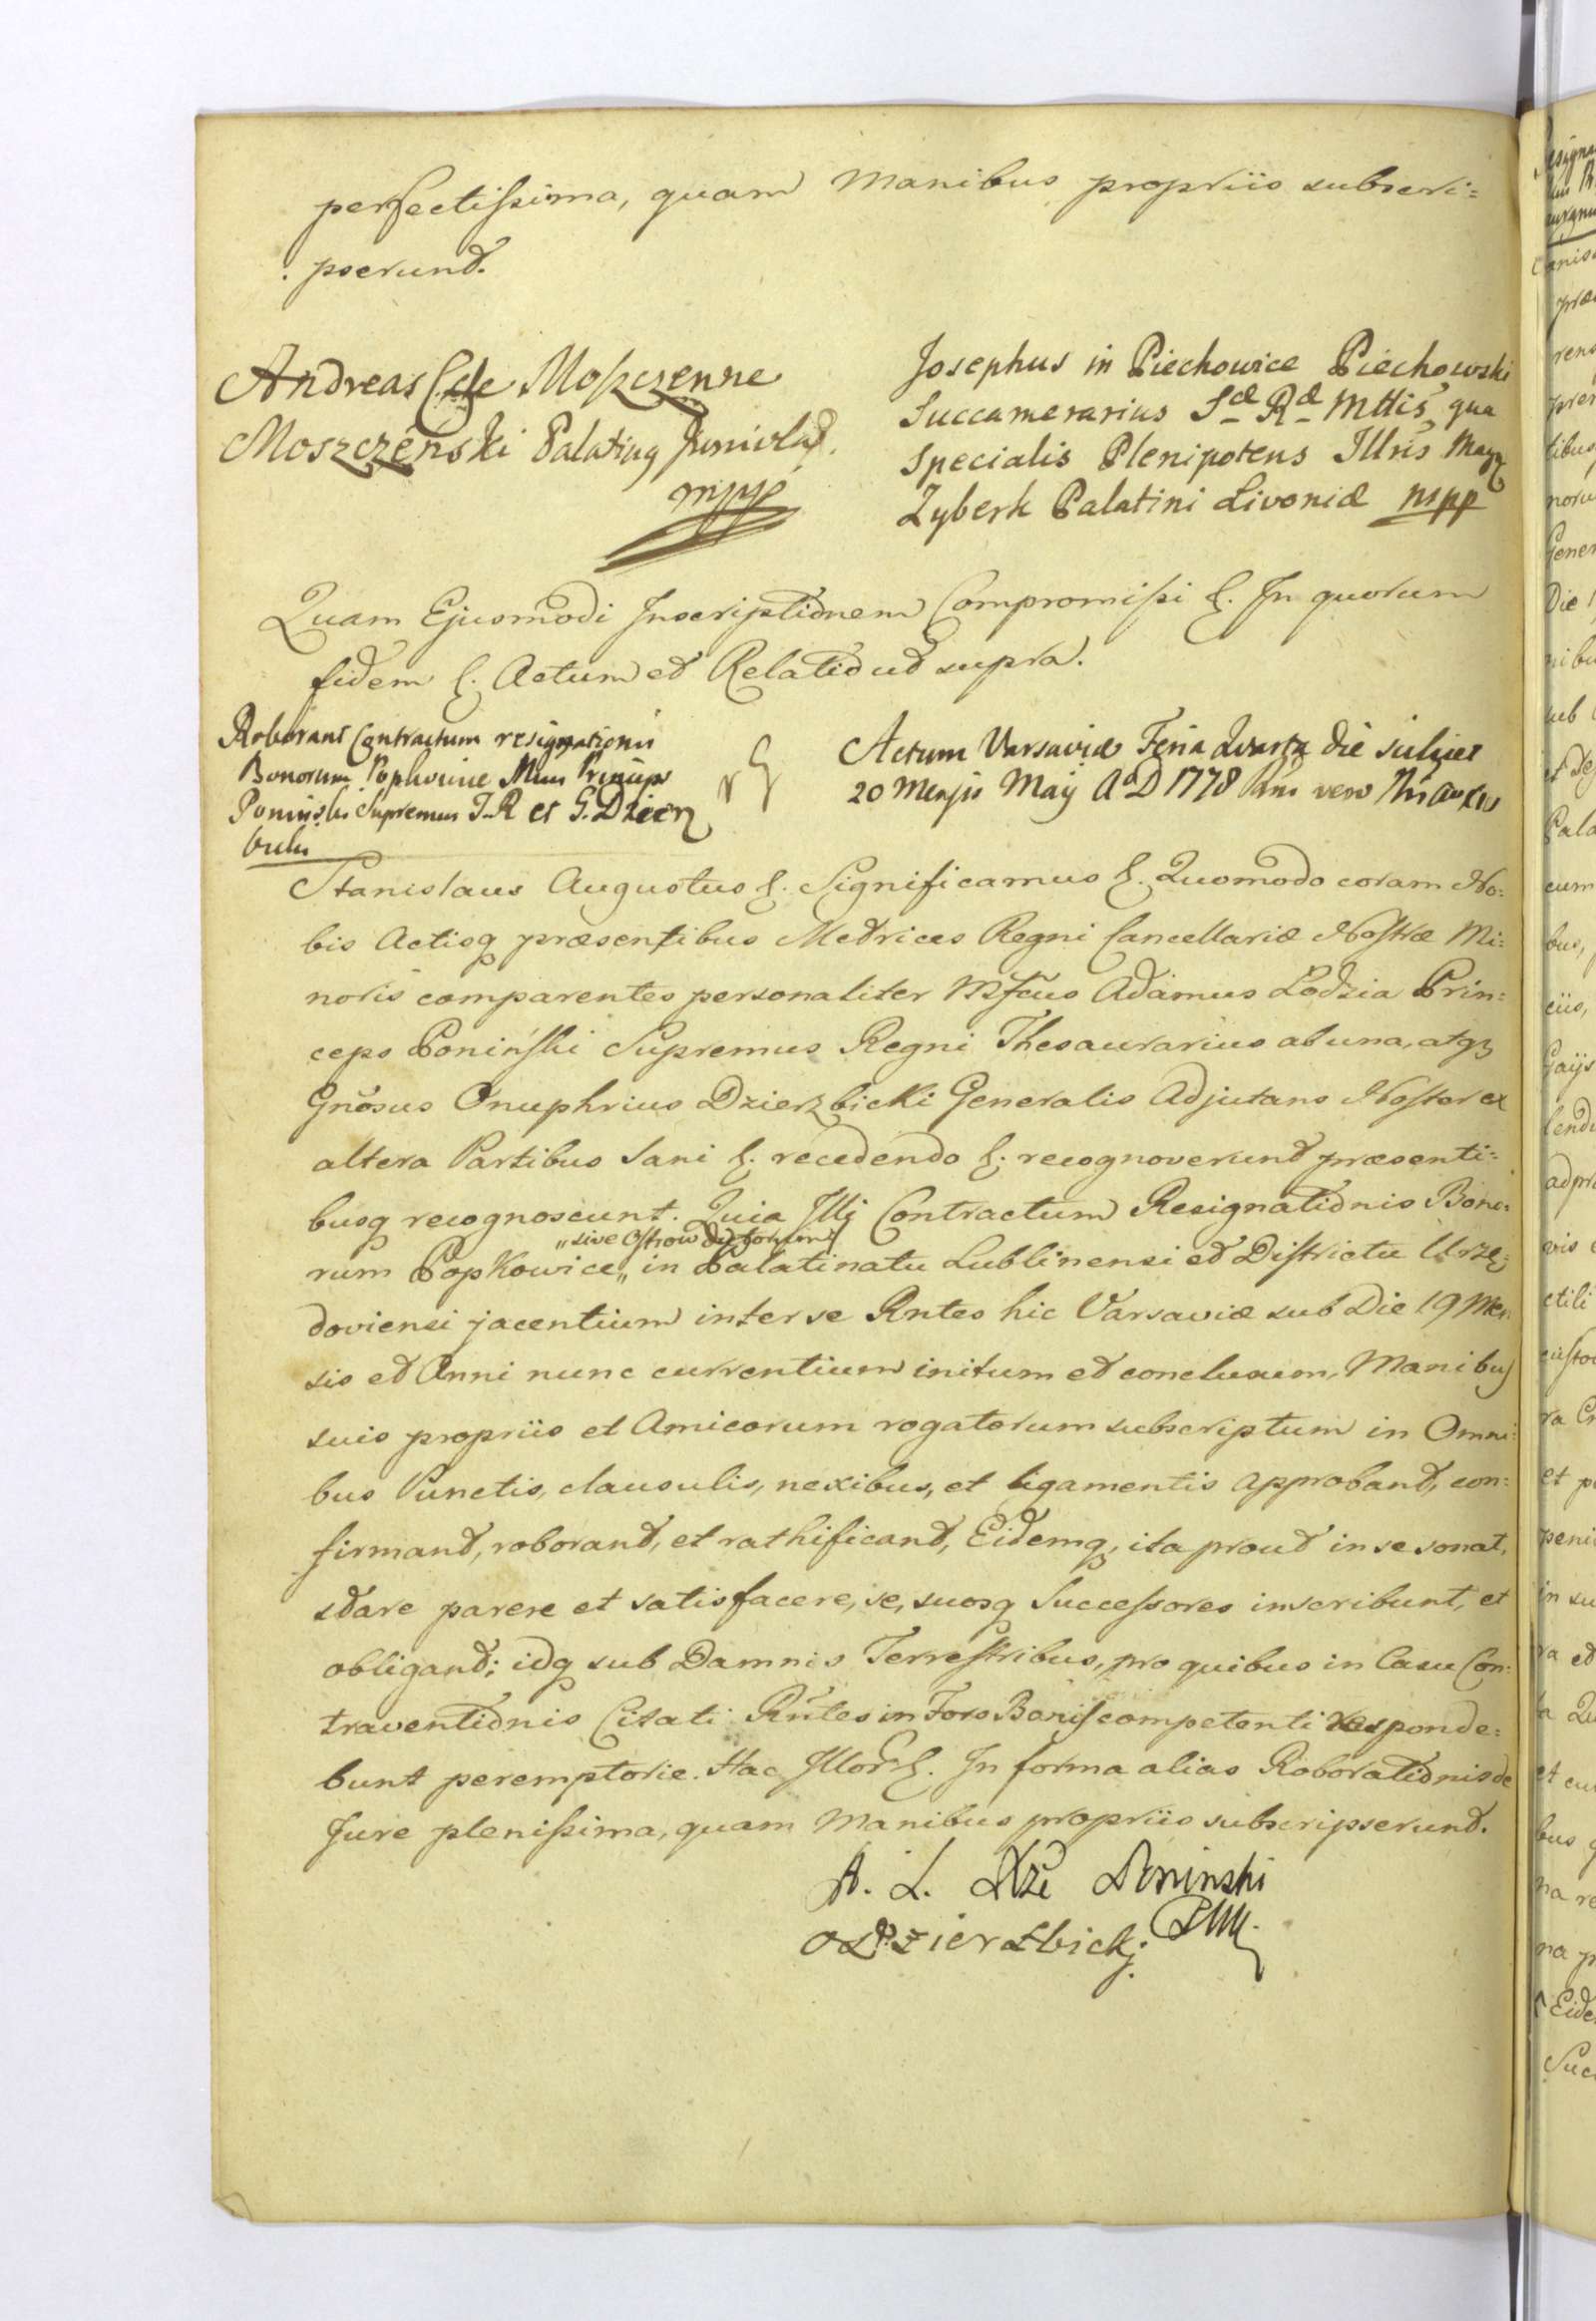 perfectißima, quam Manibus propriis subscri=
. pserunt.
Andreas C. de Moszczenne
Moszczeński Palatinq Junivlad.
mpp
Josephus in Piechowice Piechowski
Succamerarius Sæ Ræ Mttis qua
Specialis Plenipotens Illris Magn
Zyberk Palatini Livoniæ mpp
Quam Ejusmodi Inscriptionem Compromißi &. In quorum
fidem &. Actum et Relatio ut supra.
Roborant Contractum resignationis
Bonorum Popkowice Princeps
Poninski Supremus T. R et G. Dzierz
bicki
Actum Varsaviæ Feria Quarta die scilicet
20 Mensis Maÿ Ao D 1778
Stanislaus Augustus &. Significamus &. Quomodo coram No=
bis Actisq præsentibus Metrices Regni Cancellariæ Nostræ Mi=
noris comparentes personaliter Mfcus Adamus Łodzia Prin=
ceps Poniński Supremus Regni Thesaurarius ab una, atq
Gnosus Onuphrius Dzierzbicki Generalis Adjutans Noster ex
altera Partibus Sani &. recedendo &. recognoverunt præsenti=
busq recognoscunt. Quia Illi Contractum Resignationis Bono=
„sive Ostrow dictorum
rum Popkowice „ in Palatinatu Lublinensi et Districtu Urzę=
doviensi jacentium inter se Rntes hic Varsaviæ sub Die 19 Men
sis et Anni nunc currentium initum et conclusum, Manibus
suis propriis et Amicorum rogatorum subscriptum in Omni=
bus Punctis, clausulis, nexibus, et ligamentis approbant, con=
firmant, roborant, et rathificant, Eidemq, ita prout in se sonat,
stare parere et satisfacere, se, suosq Successores inscribunt, et
obligant; idq sub Damnis Terrestribus, pro quibus in Casu Con=
traventionis Citati Rntes in Foro Bonis competenti responde=
bunt peremptorie. Hac Illor &. In forma alias Roborationis de
Jure plenißima, quam Manibus propriis subscripserunt.
A. Ł. Xże Poninski
PWK.
O Dzierzbickj.